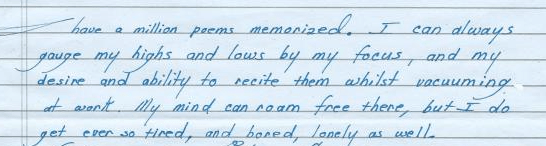 I have a million poems memorized. I can always
gauge my highs and lows by my focus, and my
desire and ability to recite them whilst vacuuming
at work. My mind can roam free there, but I do
get ever so tired, and bored, lonely as well.